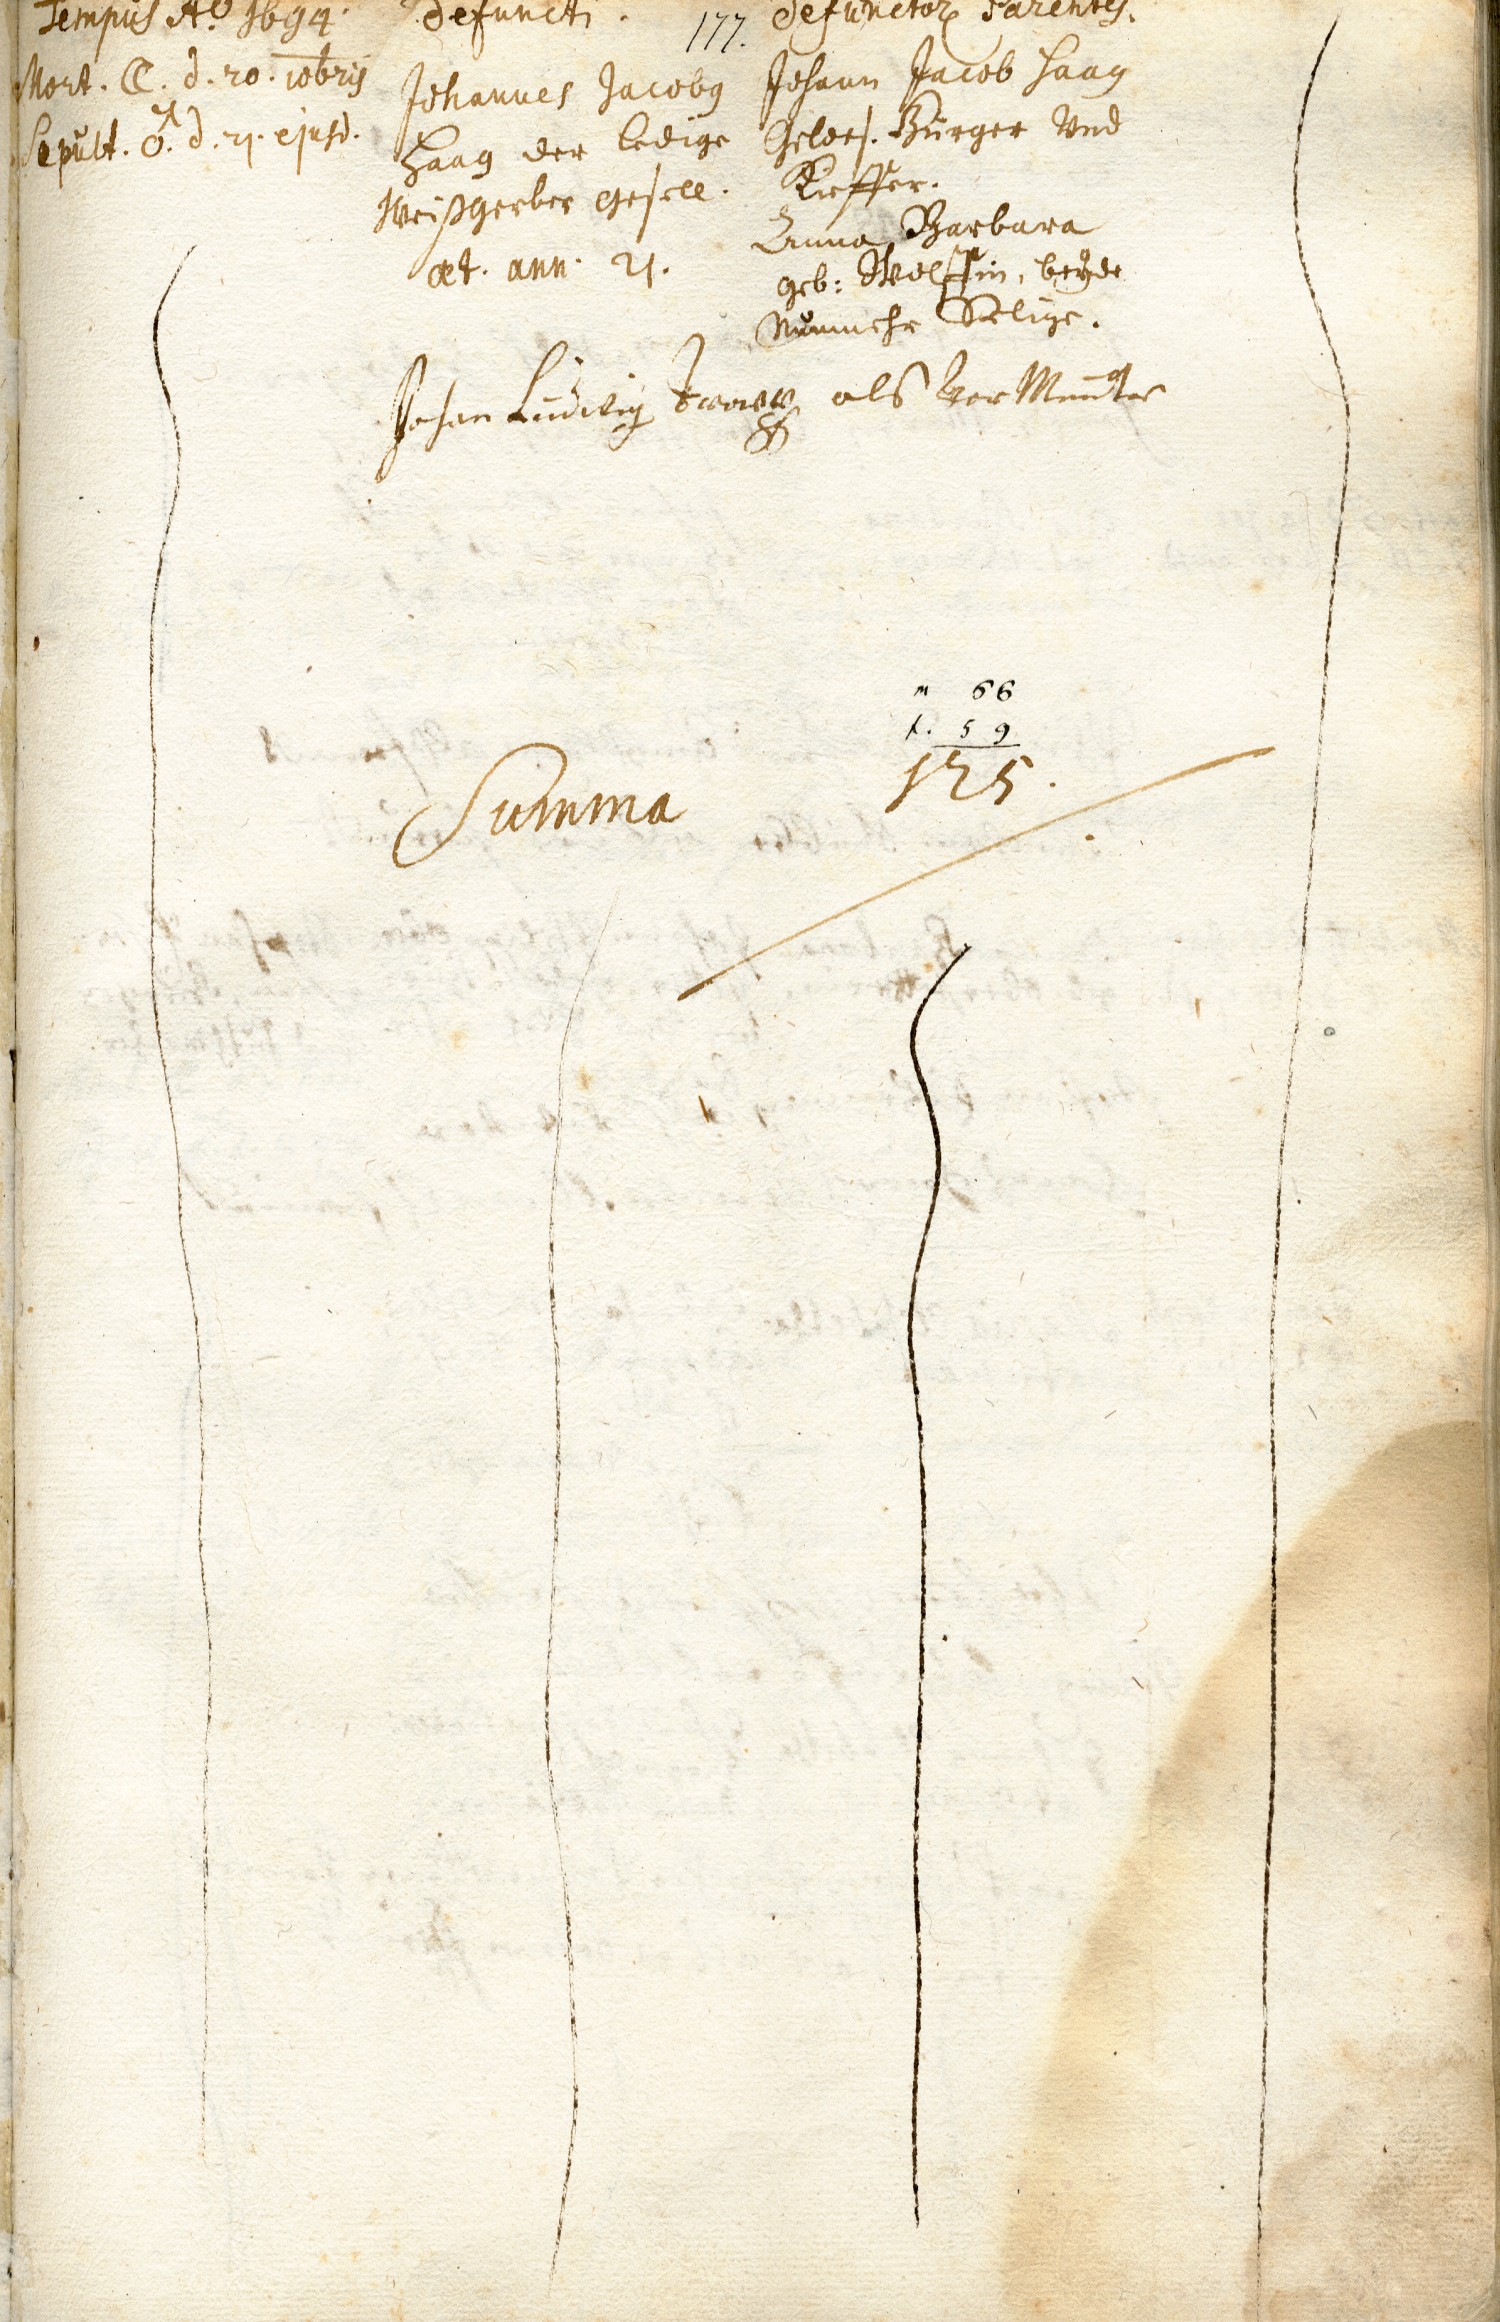 Tempus Aº 1694.
defuncti.
177.
defunctor. Parentes.
Mort. ☾. d. 20. 10bris
Sepult. ♂. d. 21. ejusd.
Johannes Jacobus
Haag der ledige
Weißgerber Gesell.
æt. ann. 21.
Johann Jacob Haag
Burger Und
Kieffer.
Anna Barbara
geb: Wolffin, beyde
Nunmehr Selige.
Johan Ludwig als
m 66
f. 59
Summa 125.